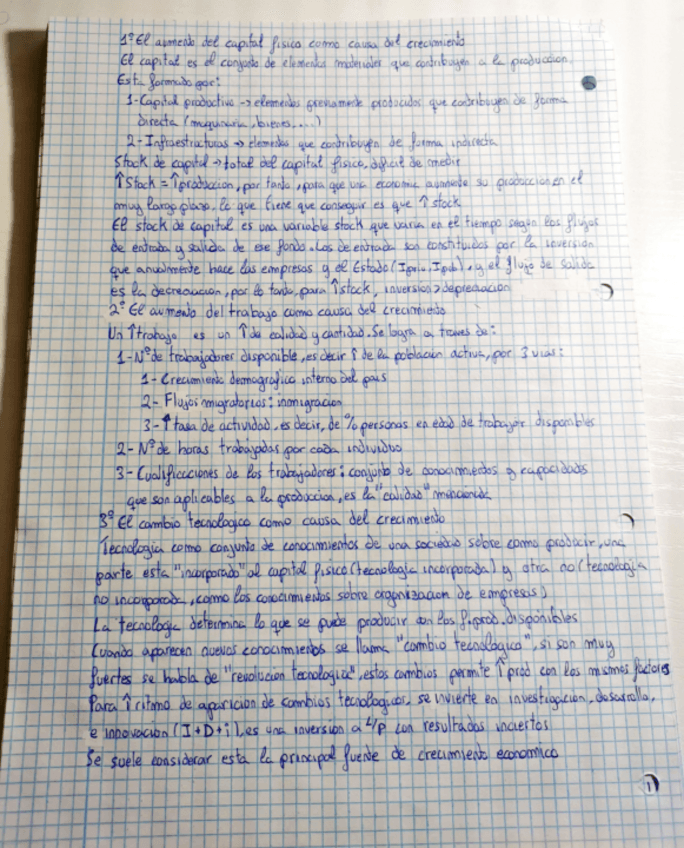 1º El aumento del capital fisico como causa del crecimiento
El capital es el conjunto de elementos materiales que contribuyen a la produccion.
Esta formado por:
1-Capital productivo → elementos previamente producidos que contribuyen de forma
directa (maquinaria, bienes,...)
2- Infraestructuras → elementos que contribuyen de forma indirecta
Stock de capital → total del capital fisico, dificil de medir
↑Stock = ↑produccion, por tanto, para que una economia aumente su produccion en el
muy largo plazo, lo que tiene que conseguir es que ↑ stock
El stock de capital es una variable stock que varia en el tiempo segun los flujos
de entrada y salida de ese fondo. Los de entrada son constituidos por la inversion
que anualmente hace las empresas y el Estado (Ipriv, Ipub), y el flujo de salida
es la depreciacion, por lo tanto, para ↑stock, inversion > depreciacion
2º El aumento del trabajo como causa del crecimiento
Un ↑trabajo es un ↑ de calidad y cantidad. Se logra a traves de:
1-Nº de trabajadores disponible, es decir ↑ de la poblacion activa, por 3 vias:
1- Crecimiento demografico interno del pais
2- Flujos migratorios: inmigracion
3- ↑ tasa de actividad, es decir, de % personas en edad de trabajar disponibles
2- Nº de horas trabajadas por cada individuo
3- Cualificaciones de los trabajadores: conjunto de conocimientos y capacidades
que son aplicables a la produccion, es la "calidad" mencionada
3º El cambio tecnologico como causa del crecimiento
Tecnologia como conjunto de conocimientos de una sociedad sobre como producir, una
parte esta "incorporado" al capital fisico (tecnologia incorporada) y otra no (tecnologia
no incorporada, como los conocimientos sobre organizacion de empresas)
La tecnologia determina lo que se puede producir con los f.prod. disponibles
Cuando aparecen nuevos conocimientos se llama "cambio tecnologico", si son muy
fuertes se habla de "revolucion tecnologica", estos cambios permite ↑ prod con los mismos factores
Para ↑ ritmo de aparicion de cambios tecnologicos, se invierte en investigacion, desarrollo,
e innovacion (I+D+i), es una inversion a L/P con resultados inciertos
Se suele considerar esta la principal fuente de crecimiento economico
1